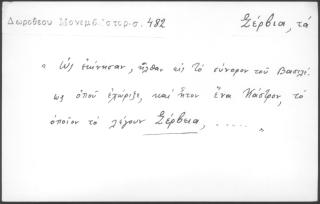 Δωροθέου Μονεμβ. ἱστορ. σ. 482
Σέρβια, τά
" Ὡς ἐκίνησαν, ἦλθαν εἰς τὸ σύνορον τοῦ Βασιλέ-
ως ὁποῦ ἐχώριζε, καὶ ἦτον ἕνα Κάστρον, τὸ
ὁποῖον τὸ λέγουν Σέρβια, ..... "